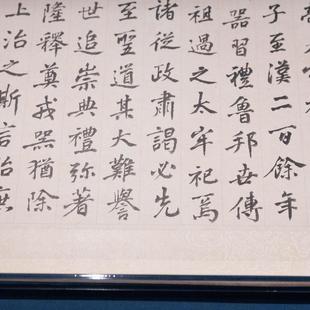 子至漢二百餘年
器習禮魯邦世傳
祖過之太牢祀焉
諸從政肅謁必先
至聖道某大難譽
世追崇典禮弥著
隆釋奠戎器猶除
上治之斯言治庶